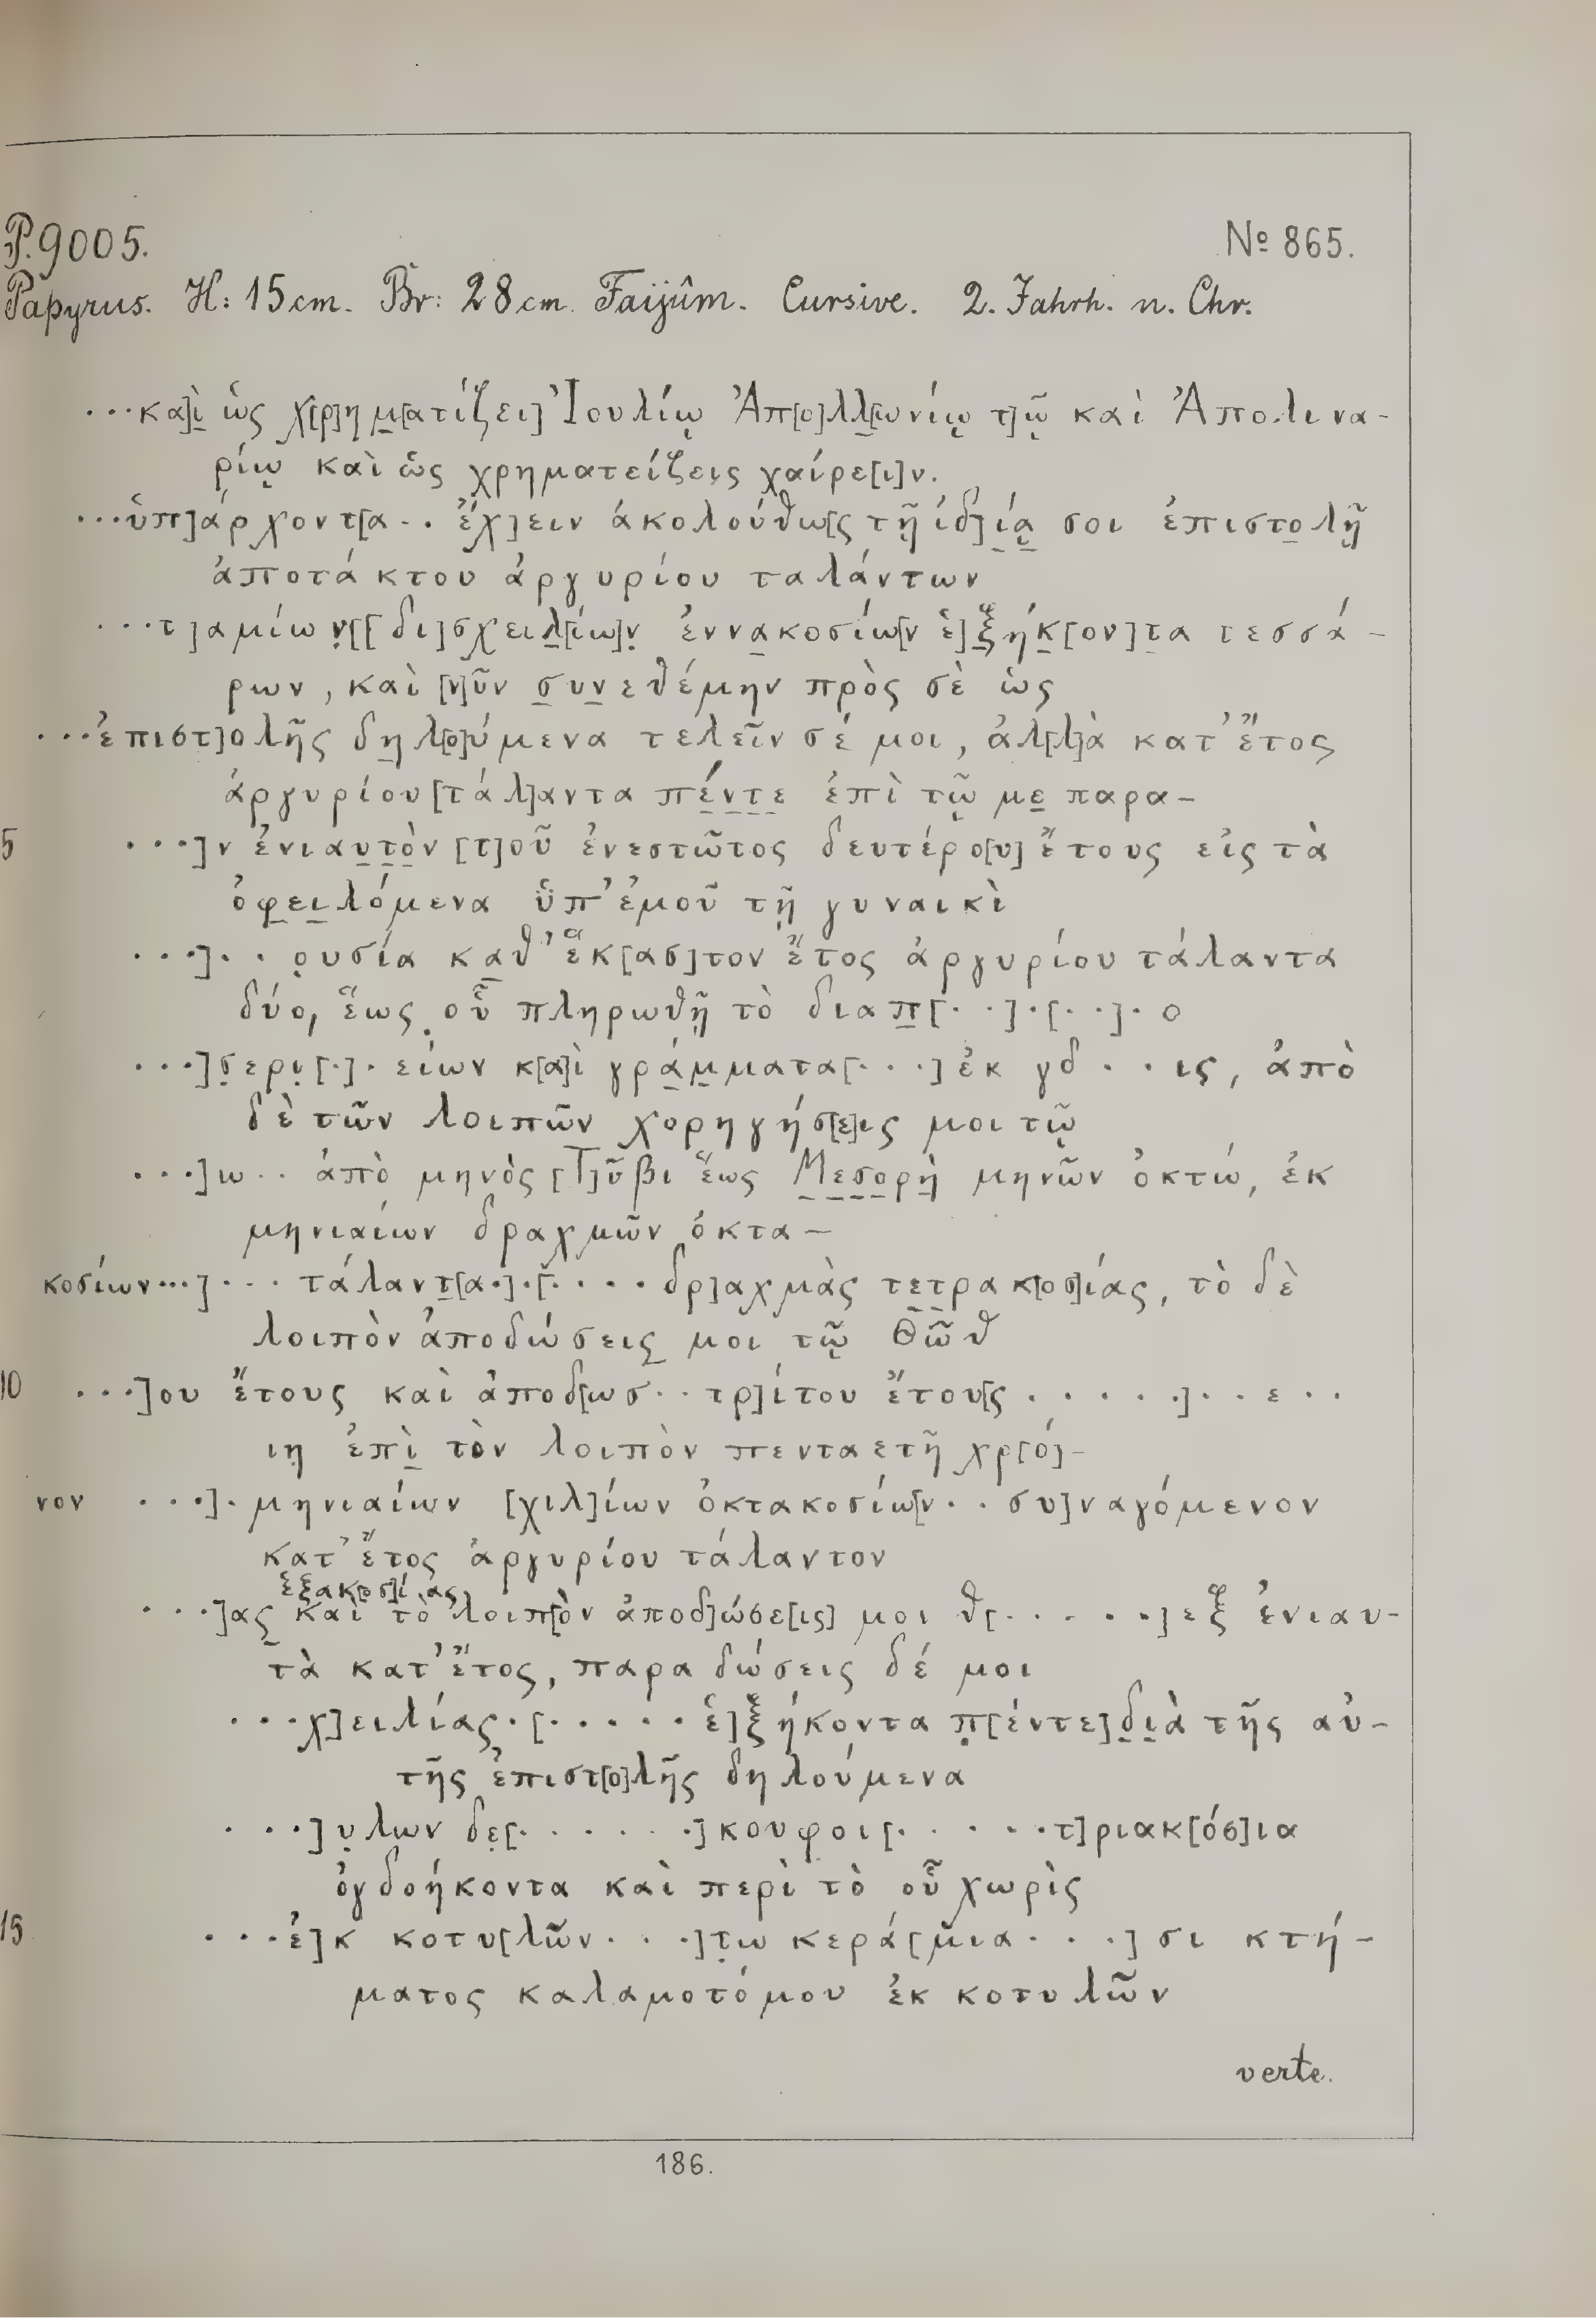 P. 9005. № 865.
Papyrus. H: 15 cm. Br: 28 cm. Faijûm. Cursive. 2. Jahrh. n. Chr.
···κα]ὶ ὡς χ[ρ]ημ[ατίζει] Ἰουλίῳ Ἀπ[ο]λλ[ωνίῳ τ]ῷ καὶ Ἀπολινα-
ρίῳ καὶ ὡς χρηματείζεις χαίρε[ι]ν.
···ὑπ]άρχοντ[α ·· ἔχ]ειν ἀκολούθω[ς τῇ ἰδ]ίᾳ σοι ἐπιστολῇ
ἀποτάκτου ἀργυρίου ταλάντων
···τ]αμίων[[δι]σχειλ[ίω]ν ἐννακοσίω[ν ἑ]ξήκ[ον]τα τεσσά-
ρων, καὶ [ν]ῦν συνεθέμην πρὸς σὲ ὡς
···ἐπιστ]ολῆς δηλ[ο]ύμενα τελεῖν σέ μοι, ἀλ[λ]ὰ κατ' ἔτος
ἀργυρίου [τάλ]αντα πέντε ἐπὶ τῷ με παρα-
5 ···]ν ἐνιαυτὸν [τ]οῦ ἐνεστῶτος δευτέρο[υ] ἔτους εἰς τὰ
ὀφειλόμενα ὑπ' ἐμοῦ τῇ γυναικὶ
···]·· ουσία καθ' ἕκ[ασ]τον ἔτος ἀργυρίου τάλαντα
δύο, ἕως οὗ πληρωθῇ τὸ διαπ[··]·[··]· ο
···]σερι[·]· είων κ[α]ὶ γράμματα[···] ἐκ γδ ·· ις, ἀπὸ
δὲ τῶν λοιπῶν χορηγήσ[ε]ις μοι τῷ
···]ω ·· ἀπὸ μηνὸς [Τ]ῦβι ἕως Μεσορὴ μηνῶν ὀκτώ, ἐκ
μηνιαίων δραχμῶν ὀκτα-
κοσίων ···]··· τάλαντ[α·]·[···· δρ]αχμὰς τετρακ[οσ]ίας, τὸ δὲ
λοιπὸν ἀποδώσεις μοι τῷ Θῶθ
10 ···]ου ἔτους καὶ ἀποδ[ωσ·· τρ]ίτου ἔτου[ς ·····]·· ε ··
ιῃ ἐπὶ τὸν λοιπὸν πενταετῆ χρ[ό]-
νον ···]· μηνιαίων [χιλ]ίων ὀκτακοσίω[ν ·· συ]ναγόμενον
κατ' ἔτος ἀργυρίου τάλαντον
ἑξακ[οσ]ίας
···]ας καὶ τὸ λοιπ[ὸν ἀποδ]ώσε[ις] μοι θ[·····]εξ ἐνιαυ-
τὰ κατ' ἔτος, παραδώσεις δέ μοι
···χ]ειλίας·[····· ἑ]ξήκοντα π[έντε] διὰ τῆς αὐ-
τῆς ἐπιστ[ο]λῆς δηλούμενα
···]υλων δε[······]κουφοι[·····τ]ριακ[όσ]ια
ὀγδοήκοντα καὶ περὶ τὸ οὗ χωρὶς
15 ···ἐ]κ κοτυ[λῶν···]τω κερά[μια···]σι κτή-
ματος καλαμοτόμου ἐκ κοτυλῶν
verte.
186.